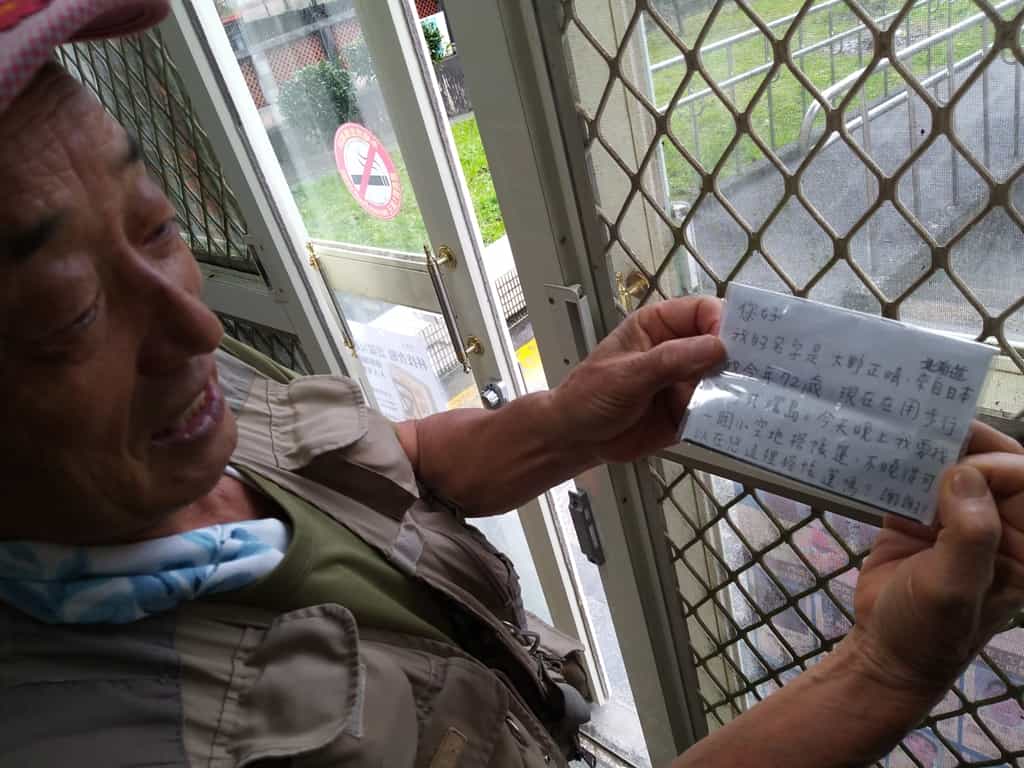 你好
我的名字是大野正晴,來自日本
北海道
今年72歲 現在在用步行
環島,今天晚上我要找
一個小空地搭帳蓬,不曉得可
以在您這裡搭帳蓬嗎?謝謝!!